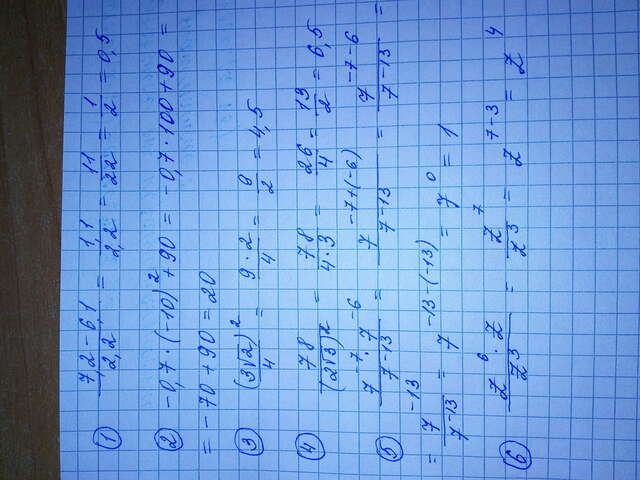 ① (7,2 − 6,1)/2,2 = 1,1/2,2 = 11/22 = 1/2 = 0,5
② −0,7 · (−10)² + 90 = −0,7 · 100 + 90 =
= −70 + 90 = 20
③ (3√2)²/4 = (9 · 2)/4 = 9/2 = 4,5
④ 78/(2√3)² = 78/(4 · 3) = 26/4 = 13/2 = 6,5
⑤ (7⁻⁷ · 7⁻⁶)/7⁻¹³ = 7⁻⁷⁺⁽⁻⁶⁾/7⁻¹³ = 7⁻⁷⁻⁶/7⁻¹³ =
= 7⁻¹³/7⁻¹³ = 7⁻¹³⁻⁽⁻¹³⁾ = 7⁰ = 1
⑥ (z⁶ · z)/z³ = z⁷/z³ = z⁷⁻³ = z⁴